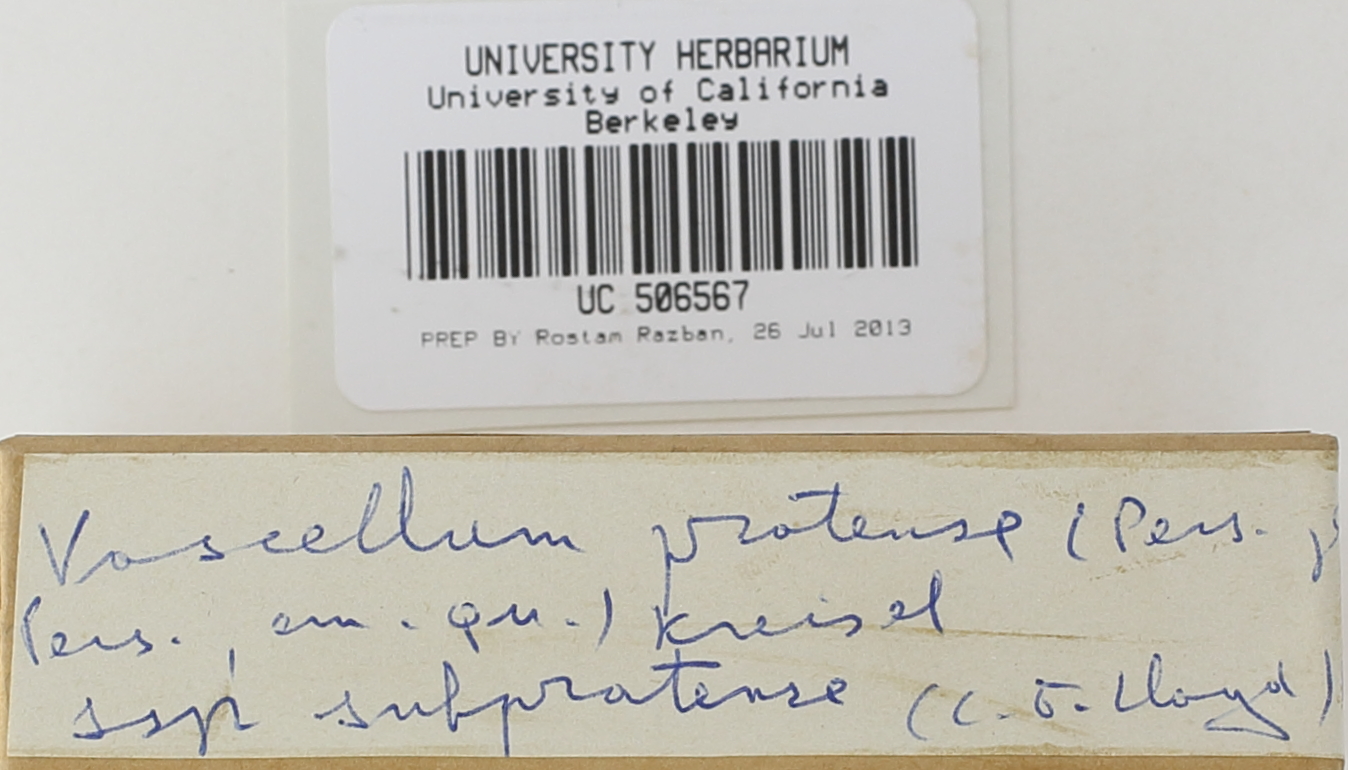 UNIVERSITY HERBARIUM
University of California
Berkeley
UC 506567
PREP BY Rostam Razban, 26 Jul 2013
Vascellum pratense (Pers. p
Pers., em. Qu.) Kreisel
ssp. subpratense (C. G. Lloyd)